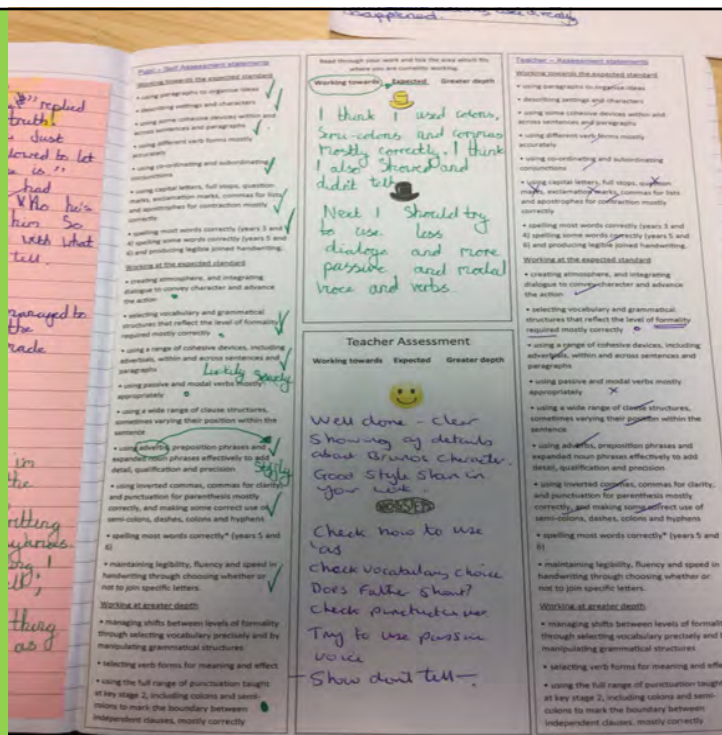 disappeared.
replied
truth.
Just
lowed to let
is"
had
Who he's
him So
with what
tell.
managed to
the
rade
in
the
ritting
thing
as
Pupil – Self Assessment statements
Working towards the expected standard
• using paragraphs to organise ideas
• describing settings and characters
• using some cohesive devices within and
across sentences and paragraphs
• using different verb forms mostly
accurately
• using co-ordinating and subordinating
conjunctions
• using capital letters, full stops, question
marks, exclamation marks, commas for lists
and apostrophes for contraction mostly
correctly
• spelling most words correctly (years 3 and
4) spelling some words correctly (years 5 and
6) and producing legible joined handwriting.
Working at the expected standard
• creating atmosphere, and integrating
dialogue to convey character and advance
the action
• selecting vocabulary and grammatical
structures that reflect the level of formality
required mostly correctly
• using a range of cohesive devices, including
adverbials, within and across sentences and
paragraphs
• using passive and modal verbs mostly
appropriately
• using a wide range of clause structures,
sometimes varying their position within the
sentence
• using adverbs, preposition phrases and
expanded noun phrases effectively to add
detail, qualification and precision
• using inverted commas, commas for clarity,
and punctuation for parenthesis mostly
correctly, and making some correct use of
semi-colons, dashes, colons and hyphens
• spelling most words correctly* (years 5 and
6)
• maintaining legibility, fluency and speed in
handwriting through choosing whether or
not to join specific letters.
Working at greater depth
• managing shifts between levels of formality
through selecting vocabulary precisely and by
manipulating grammatical structures
• selecting verb forms for meaning and effect
• using the full range of punctuation taught
at key stage 2, including colons and semi-
colons to mark the boundary between
independent clauses, mostly correctly
Read through your work and tick the area which fits
where you are currently working.
Working towards Expected Greater depth
I think I used colons,
Semi-colons and commas
mostly correctly. I think
I also Showed and
didn't tell
Next I Should try
to use less
dialoge and more
passive and modal
voice and verbs.
Teacher Assessment
Working towards Expected Greater depth
Well done – clear
Showing of details
about Bruno's character.
Good Style Shown in
your work.
Check how to use
'as
check vocabulary choice
Does Father Shout?
Check punctuation use
Try to use passive
voice
– Show don't tell –
Teacher – Assessment statements
Working towards the expected standard
• using paragraphs to organise ideas
• describing settings and characters
• using some cohesive devices within and
across sentences and paragraphs
• using different verb forms mostly
accurately
• using co-ordinating and subordinating
conjunctions
• using capital letters, full stops, question
marks, exclamation marks, commas for lists
and apostrophes for contraction mostly
correctly
• spelling most words correctly (years 3 and
4) spelling some words correctly (years 5 and
6) and producing legible joined handwriting.
Working at the expected standard
• creating atmosphere, and integrating
dialogue to convey character and advance
the action
• selecting vocabulary and grammatical
structures that reflect the level of formality
required mostly correctly
• using a range of cohesive devices, including
adverbials, within and across sentences and
paragraphs
• using passive and modal verbs mostly
appropriately
• using a wide range of clause structures,
sometimes varying their position within the
sentence
• using adverbs, preposition phrases and
expanded noun phrases effectively to add
detail, qualification and precision
• using inverted commas, commas for clarity,
and punctuation for parenthesis mostly
correctly, and making some correct use of
semi-colons, dashes, colons and hyphens
• spelling most words correctly* (years 5 and
6)
• maintaining legibility, fluency and speed in
handwriting through choosing whether or
not to join specific letters.
Working at greater depth
• managing shifts between levels of formality
through selecting vocabulary precisely and
manipulating grammatical structures
• selecting verb forms for meaning and effe
• using the full range of punctuation taught
at key stage 2, including colons and semi-
colons to mark the boundary between
independent clauses, mostly correctly